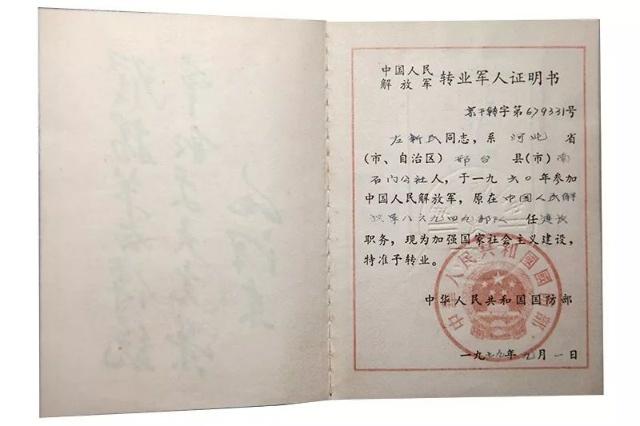 中国人民
解放军 转业军人证明书
京干转字第679331号
左新民同志，系 河北 省
（市、自治区）邢台 县（市）南
石门公社人，于一九六〇年参加
中国人民解放军，原在中国人民解
放军八九九四九部队 任连长
职务，现为加强国家社会主义建设，
特准予转业。
中华人民共和国国防部
中华人民共和国國防部
一九七九年九月一日